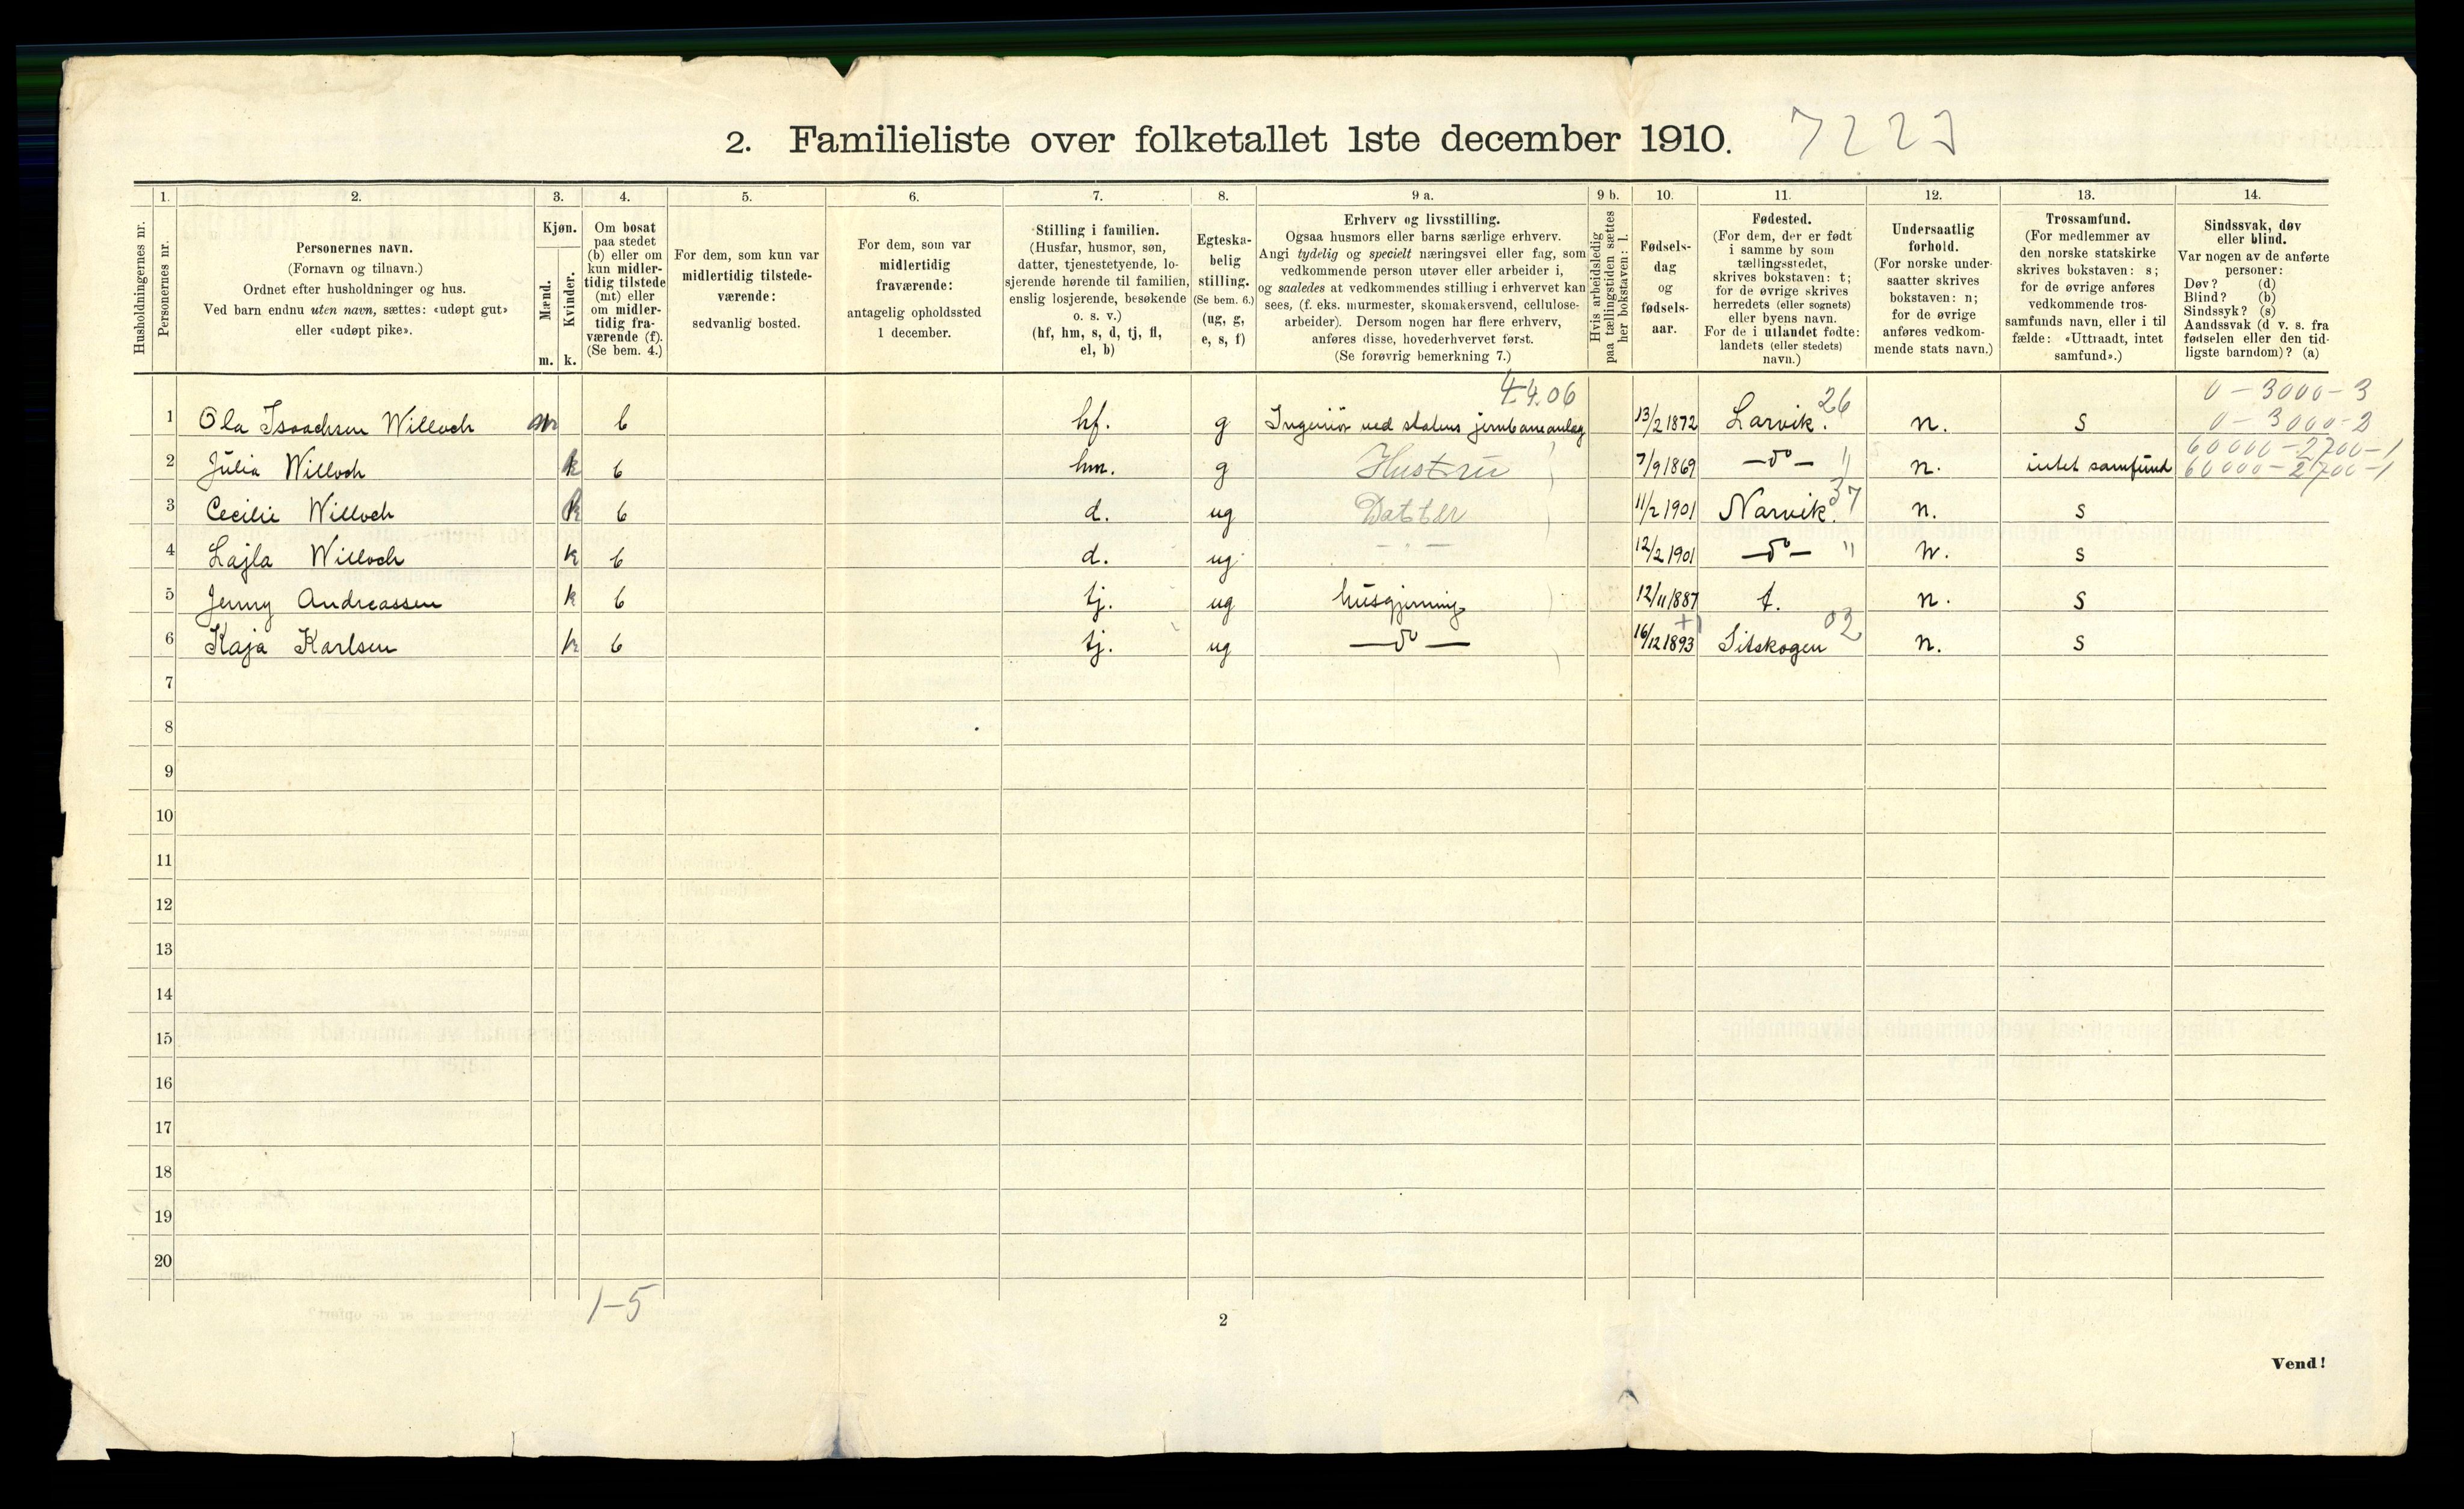 2. Familieliste over folketallet 1ste december 1910. 7227
Husholdningernes nr.
1.
Personernes nr.
2.
Personernes navn.
(Fornavn og tilnavn.)
Ordnet efter husholdninger og hus.
Ved barn endnu uten navn, sættes: «udøpt gut»
eller «udøpt pike».
3.
Kjøn.
Mænd.
m.
Kvinder.
k.
4.
Om bosat
paa stedet
(b) eller om
kun midler-
tidig tilstede
(mt) eller
om midler-
tidig fra-
værende (f).
(Se bem. 4.)
5.
For dem, som kun var
midlertidig tilstede-
værende:
sedvanlig bosted.
6.
For dem, som var
midlertidig
fraværende:
antagelig opholdssted
1 december.
7.
Stilling i familien.
(Husfar, husmor, søn,
datter, tjenestetyende, lo-
sjerende hørende til familien,
enslig losjerende, besøkende
o. s. v.)
(hf, hm, s, d, tj, fl,
el, b)
8.
Egteska-
belig
stilling.
(Se bem. 6.)
(ug, g,
e, s, f)
9 a.
Erhverv og livsstilling.
Ogsaa husmors eller barns særlige erhverv.
Angi tydelig og specielt næringsvei eller fag, som
vedkommende person utøver eller arbeider i,
og saaledes at vedkommendes stilling i erhvervet kan
sees, (f. eks. murmester, skomakersvend, cellulose-
arbeider). Dersom nogen har flere erhverv,
anføres disse, hovederhvervet først.
(Se forøvrig bemerkning 7.)
9 b.
Hvis arbeidsledig
paa tællingstiden sættes
her bokstaven: l.
10.
Fødsels-
dag
og
fødsels-
aar.
11.
Fødested.
(For dem, der er født
i samme by som
tællingsstedet,
skrives bokstaven: t;
for de øvrige skrives
herredets (eller sognets)
eller byens navn.
For de i utlandet fødte:
landets (eller stedets)
navn.)
12.
Undersaatlig
forhold.
(For norske under-
saatter skrives
bokstaven: n;
for de øvrige
anføres vedkom-
mende stats navn.)
13.
Trossamfund.
(For medlemmer av
den norske statskirke
skrives bokstaven: s;
for de øvrige anføres
vedkommende tros-
samfunds navn, eller i til
fælde: «Uttraadt, intet
samfund».)
14.
Sindssvak, døv
eller blind.
Var nogen av de anførte
personer:
Døv? (d)
Blind? (b)
Sindssyk? (s)
Aandssvak (d v. s. fra
fødselen eller den tid-
ligste barndom)? (a)
4.4.06 0 - 3000 - 3
1 Ola Isaachsen Willoch m b hf. g Ingeniör ved statens jernbaneanlag 13/2 1872 Larvik. 26 n. s 0 - 3000 - 3
60000 - 2700 - 1
2 Julia Willoch k b hm. g Hustru 7/9 1869 - do - " n. intet samfund 60000 - 2700 - 1
3 Cecilie Willoch k b d. ug Datter 11/2 1901 Narvik. 37 n. s
4 Lajla Willoch k b d. ug - . - 12/2 1901 - do - " n. s
5 Jenny Andreassen k b tj. ug husgjerning 12/11 1887 t. n. s
6 Kaja Karlsen k b tj. ug - do - 16/12 1893 +1 Sitskogen 02 n. s
7
8
9
10
11
12
13
14
15
16
17
18
19
20
1-5
2
Vend!